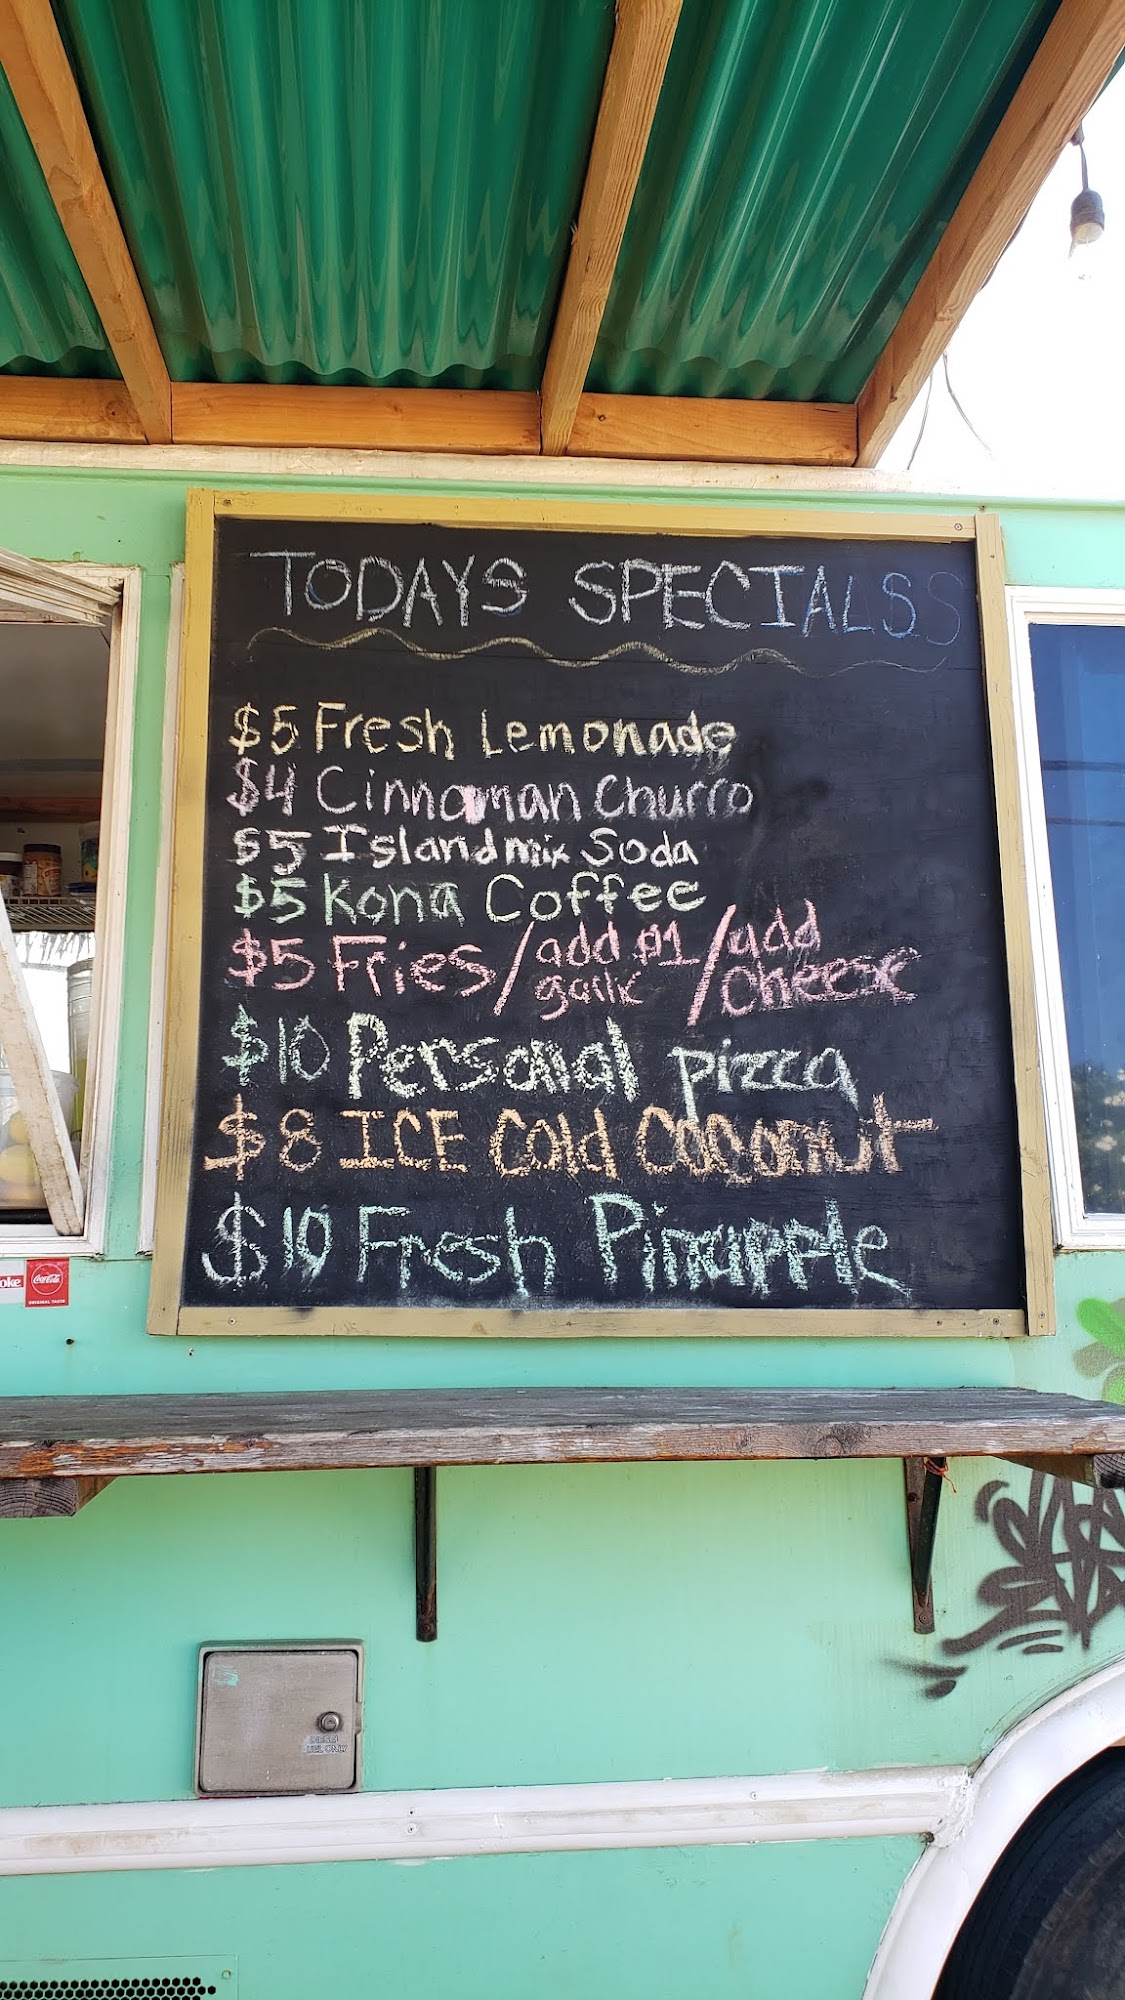 TODAYS SPECIALSS
$5 Fresh Lemonade
$4 Cinnaman Churro
$5 Island mix Soda
$5 Kona Coffee
$5 Fries / add $1 garlic / add cheese
$10 Personal pizza
$8 ICE Cold Coconut
$10 Fresh Pineapple
oke
Coca-Cola
ORIGINAL TASTE
DIESEL
FUEL ONLY